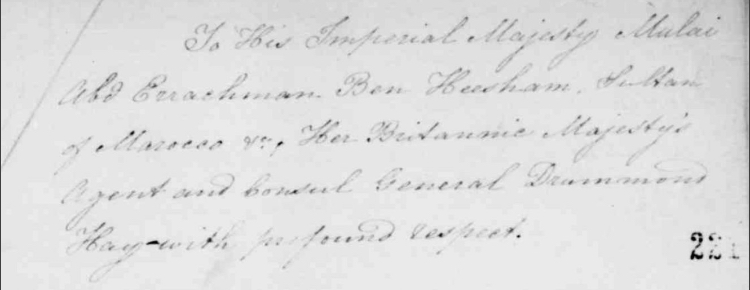 To His Imperial Majesty Mulai
Abd Errachman Ben Heesham, Sultan
of Marocco &c, Her Britannic Majesty's
Agent and Consul General Drummond
Hay with profound respect.